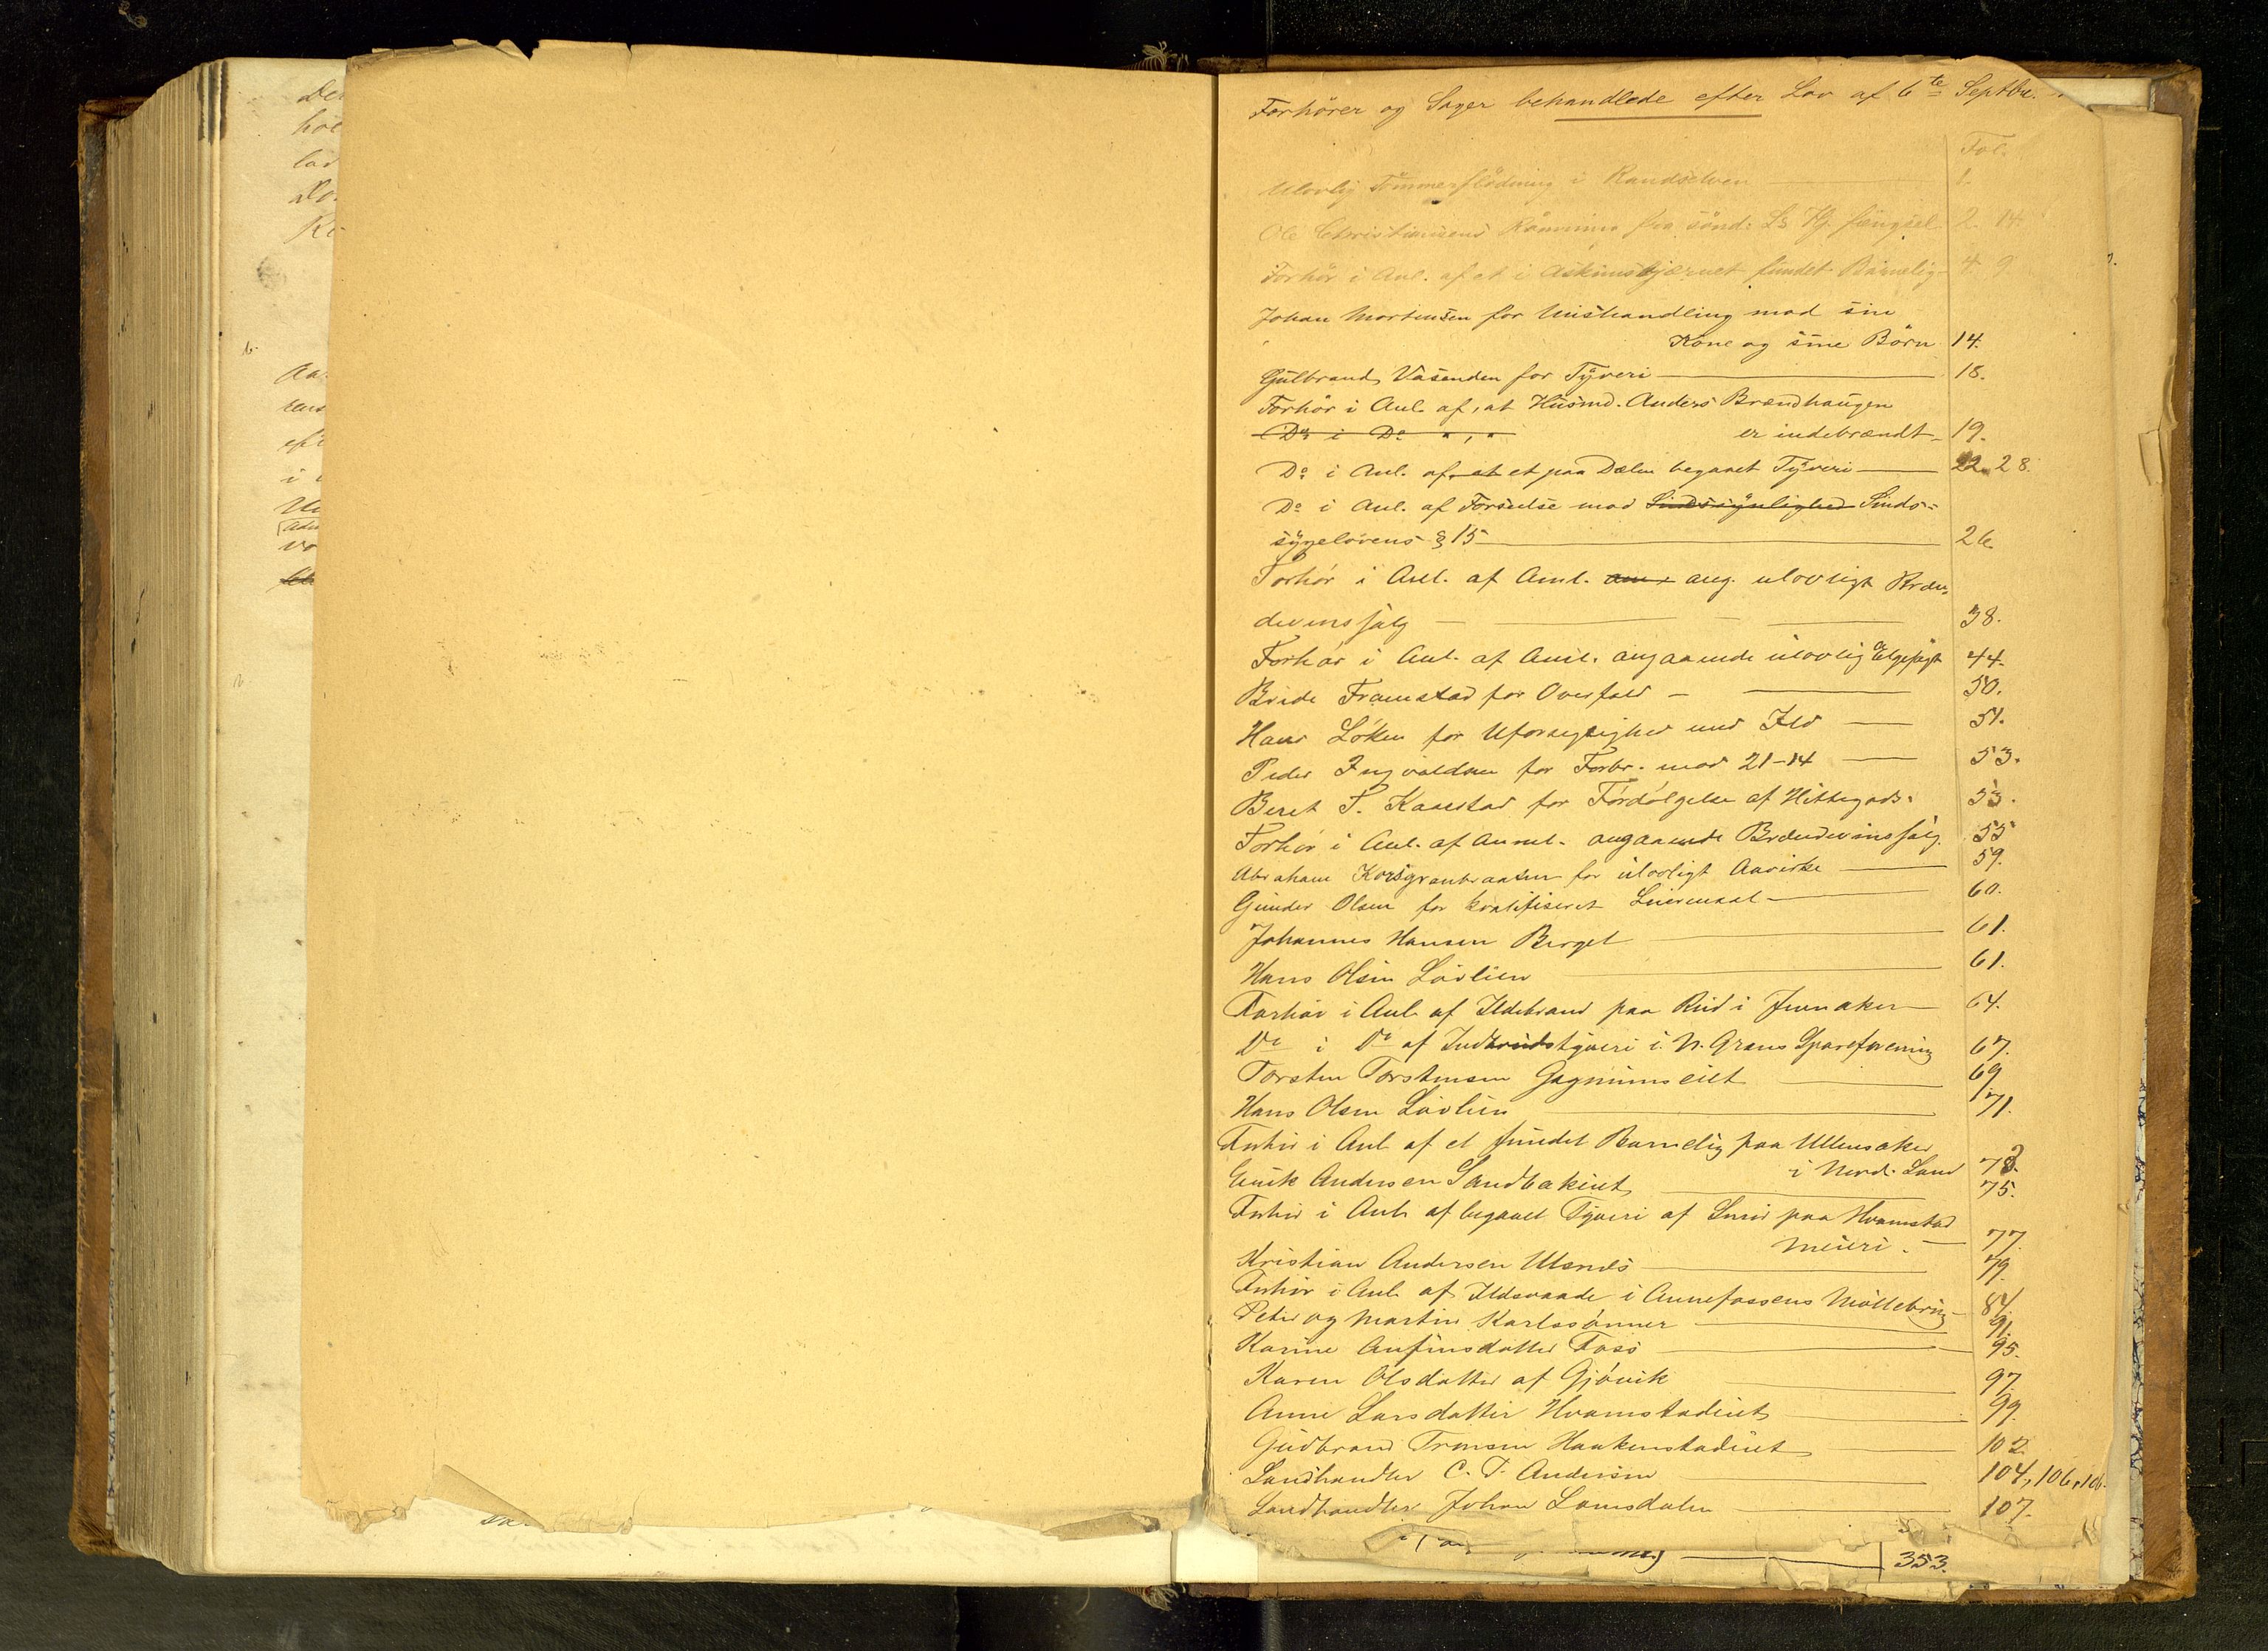 Forhører og Sager behandlede efter Lov af 6te Septbr.
Fol.
Ulovlig Tømmerflødning i Randselven 1.
Ole Christiansens Rømning fra sønd. Ls Thj. fængsel 2. 14
Forhør i Anl. af et i Askimstjærnet fundet Barnelig 4. 9
Johan Mortensen for Mishandling mod sin
Kone og sine Børn 14.
Gulbrand Vasenden for Tyveri 18.
Forhør i Anl. af, at Husmd. Anders Brændhaugen
Do i Do " , "
er indebrændt 19.
Do i Anl. af at et paa Dælen begaaet Tyveri 22. 28.
Do i Anl. af Forseelse mod Sindssygelighed Sinds=
sygelovens § 15 26
Forhør i Anl. af Anl. ang. ulovligt Bræn
devinssalg 38.
Forhør i Anl. af Anl. angaaende ulovlig Elgsjagt 44.
Bride Framstad for Overfald 50.
Hans Løken for Uforsigtighed med Ild 51.
Peder Ingvaldsen for Forbr. mod 21-14 53.
Beret T. Kanestad for Fordølgelse af Hittegods. 53.
Forhør i Anl. af Anmel. angaaende Brændevinssalg. 55
Abraham Korsgranbraaten for ulovligt Aavirke 59.
Gunder Olsen for kvalifiseret Leiermaal 60.
Johannes Hansen Berget 61.
Hans Olsen Løvlien 61.
Forhør i Anl. af Ildebrand paa Rud i Jevnaker 64.
Do i Do af Indbrudstyveri i N. Grans Spareforening 67.
Torsten Torstensen Gagnumseiet 69
Hans Olsen Løvlien 71.
Forhør i Anl. af et fundet Barnelig paa Ullensaker
i Nord. Land 73.
Erik Andersen Sandbakeiet 75.
Forhør i Anl. af begaaet Tyveri af Smør paa Hvamstad
Meieri. 77.
Kristian Andersen Ulsnæs 79.
Forhør i Anl. af Ildsvaade i Annefossens Møllebrug 84.
Peter og Martin Karlssønner 91.
Karine Anfinsdatter Foss 95.
Karen Olsdatter af Gjøvik 97.
Anne Larsdatter Hvamstadeiet 99.
Gudbrand Tronsen Haakenstadeiet 102
Landhandler C. T. Andersen 104, 106, 106.
Landhandler Johan Lomsdalen 107.
353.